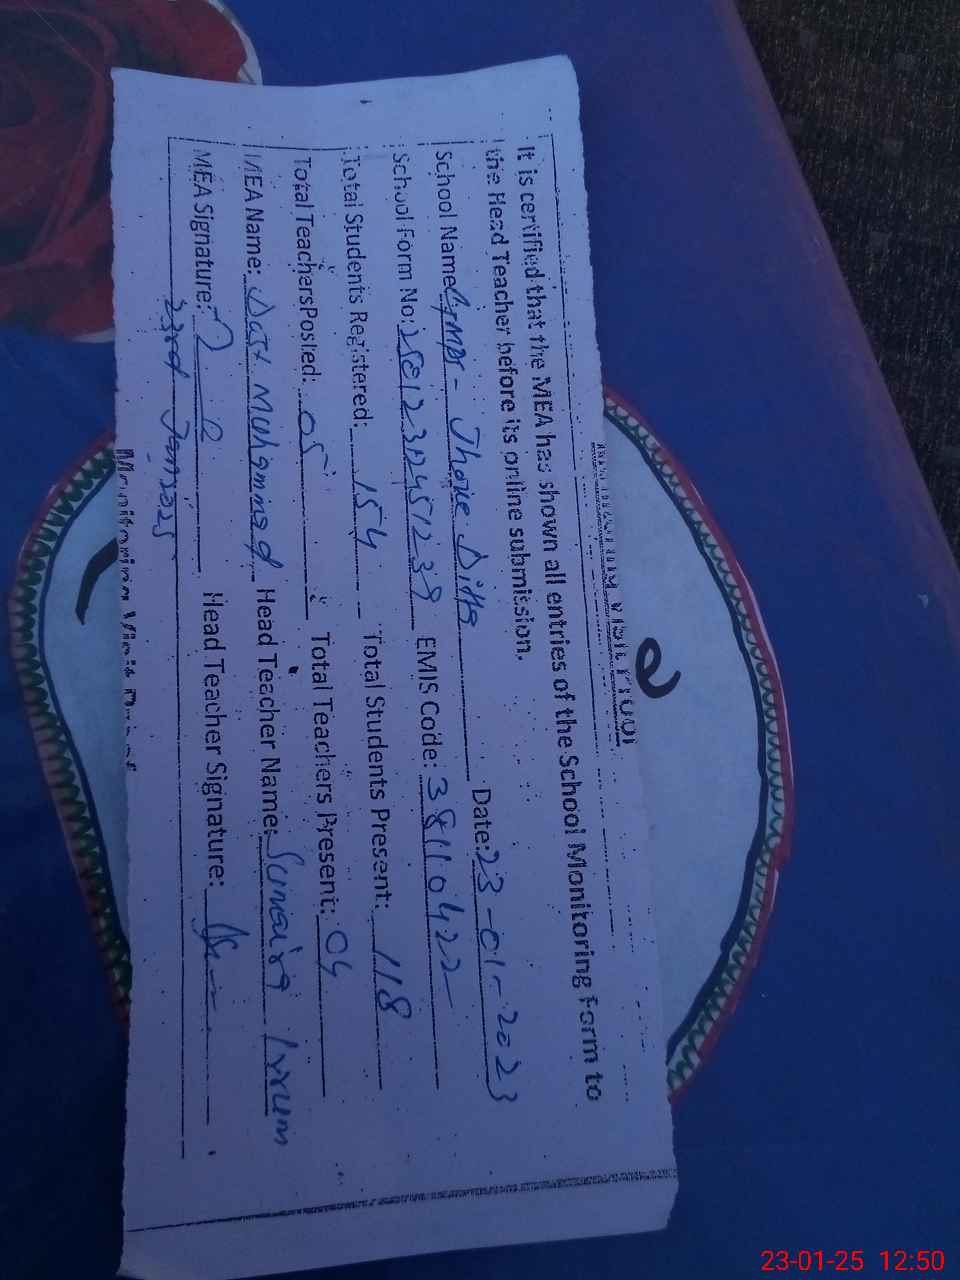 It is certified that the MEA has shown all entries of the School Monitoring Form to
the Head Teacher before its online submission.
School Name: GMPS - Jhoke Ditta Date: 23-01-2023
School Form No: EMIS Code: 38110422
Total Students Registered: 154 Total Students Present: 118
Total Teachers Posted: 05 Total Teachers Present: 04
MEA Name: Dost Muhammad Head Teacher Name: Sumaira Irrum
MEA Signature: Head Teacher Signature:
23rd Jan 2025
23-01-25 12:50